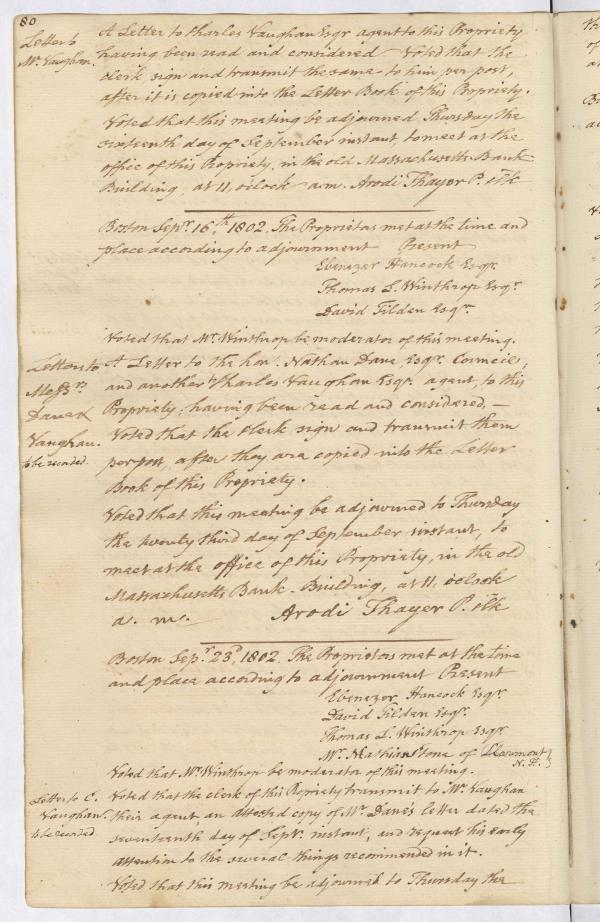 80
Letter to
Mr. Vaughan.
A Letter to Charles Vaughan Esqr. agent to this Propriety
having been read and considered Voted that the
Clerk sign and transmit the same to him per post,
after it is copied into the Letter Book of this Propriety.
Voted that this meeting be adjourned Thursday the
sixteenth day of September instant, to meet at the
office of this Propriety, in the old Massachusetts Bank
Building, at 11, oclock a.m. Arodi Thayer P. Clk
Boston Sepr. 16th, 1802. The Proprietors met at the time and
place according to adjournment Present
Ebenezer Hancock Esqr.
Thomas L. Winthrop Esqr.
David Tilden Esqr.
Voted that Mr. Winthrop be moderator of this meeting.
Letters to
Messrs
Dane &
Vaughan.
to be recorded.
A Letter to the hon. Nathan Dane, Esqr. Council,
and another Charles Vaughan Esqr. agent, to this
Propriety, having been read and considered, —
Voted that the Clerk sign and transmit them
per post, after they are copied into the Letter
Book of this Propriety.
Voted that this meeting be adjourned to Thursday
the twenty third day of September instant, to
meet at the office of this Propriety, in the old
Massachusetts Bank-Building, at 11, oclock
a. m. Arodi Thayer P. Clk
Boston Sepr. 23d, 1802. The Proprietors met at the time
and place according to adjournment Present
Ebenezer Hancock Esqr.
David Tilden Esqr.
Thomas L. Winthrop Esqr
Mr. Mathias Stone of Claremont
N. H.
Voted that Mr. Winthrop be moderator of this meeting.
Letter to C.
Vaughan.
to be recorded
Voted that the clerk of this Propriety transmit to Mr. Vaughan
their agent an attested copy of Mr. Dane's letter dated the
seventeenth day of Sept. instant, and request his early
attention to the several things recommended in it.
Voted that this meeting be adjourned to Thursday the